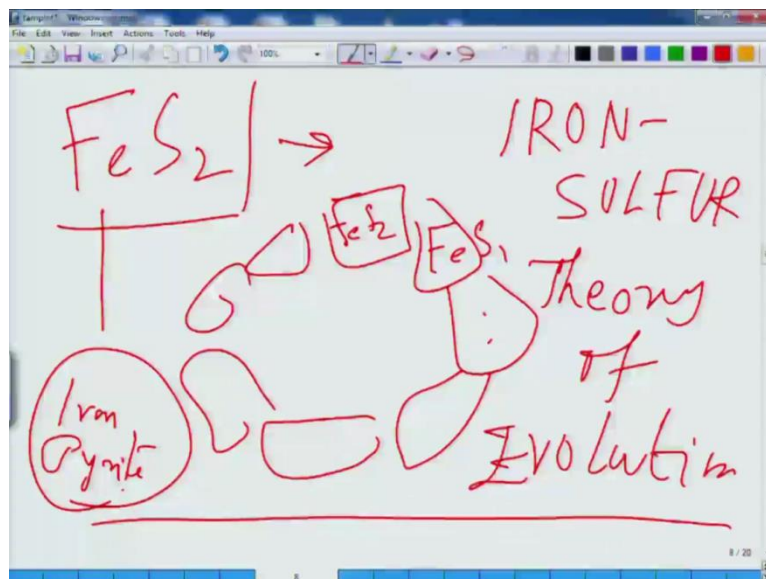 File Edit View Insert Actions Tools Help
100%
FeS2 →
IRON-
SULFUR
Theory
of
Evolution
FeS2
FeS
Iron
Pyrite
8 / 20